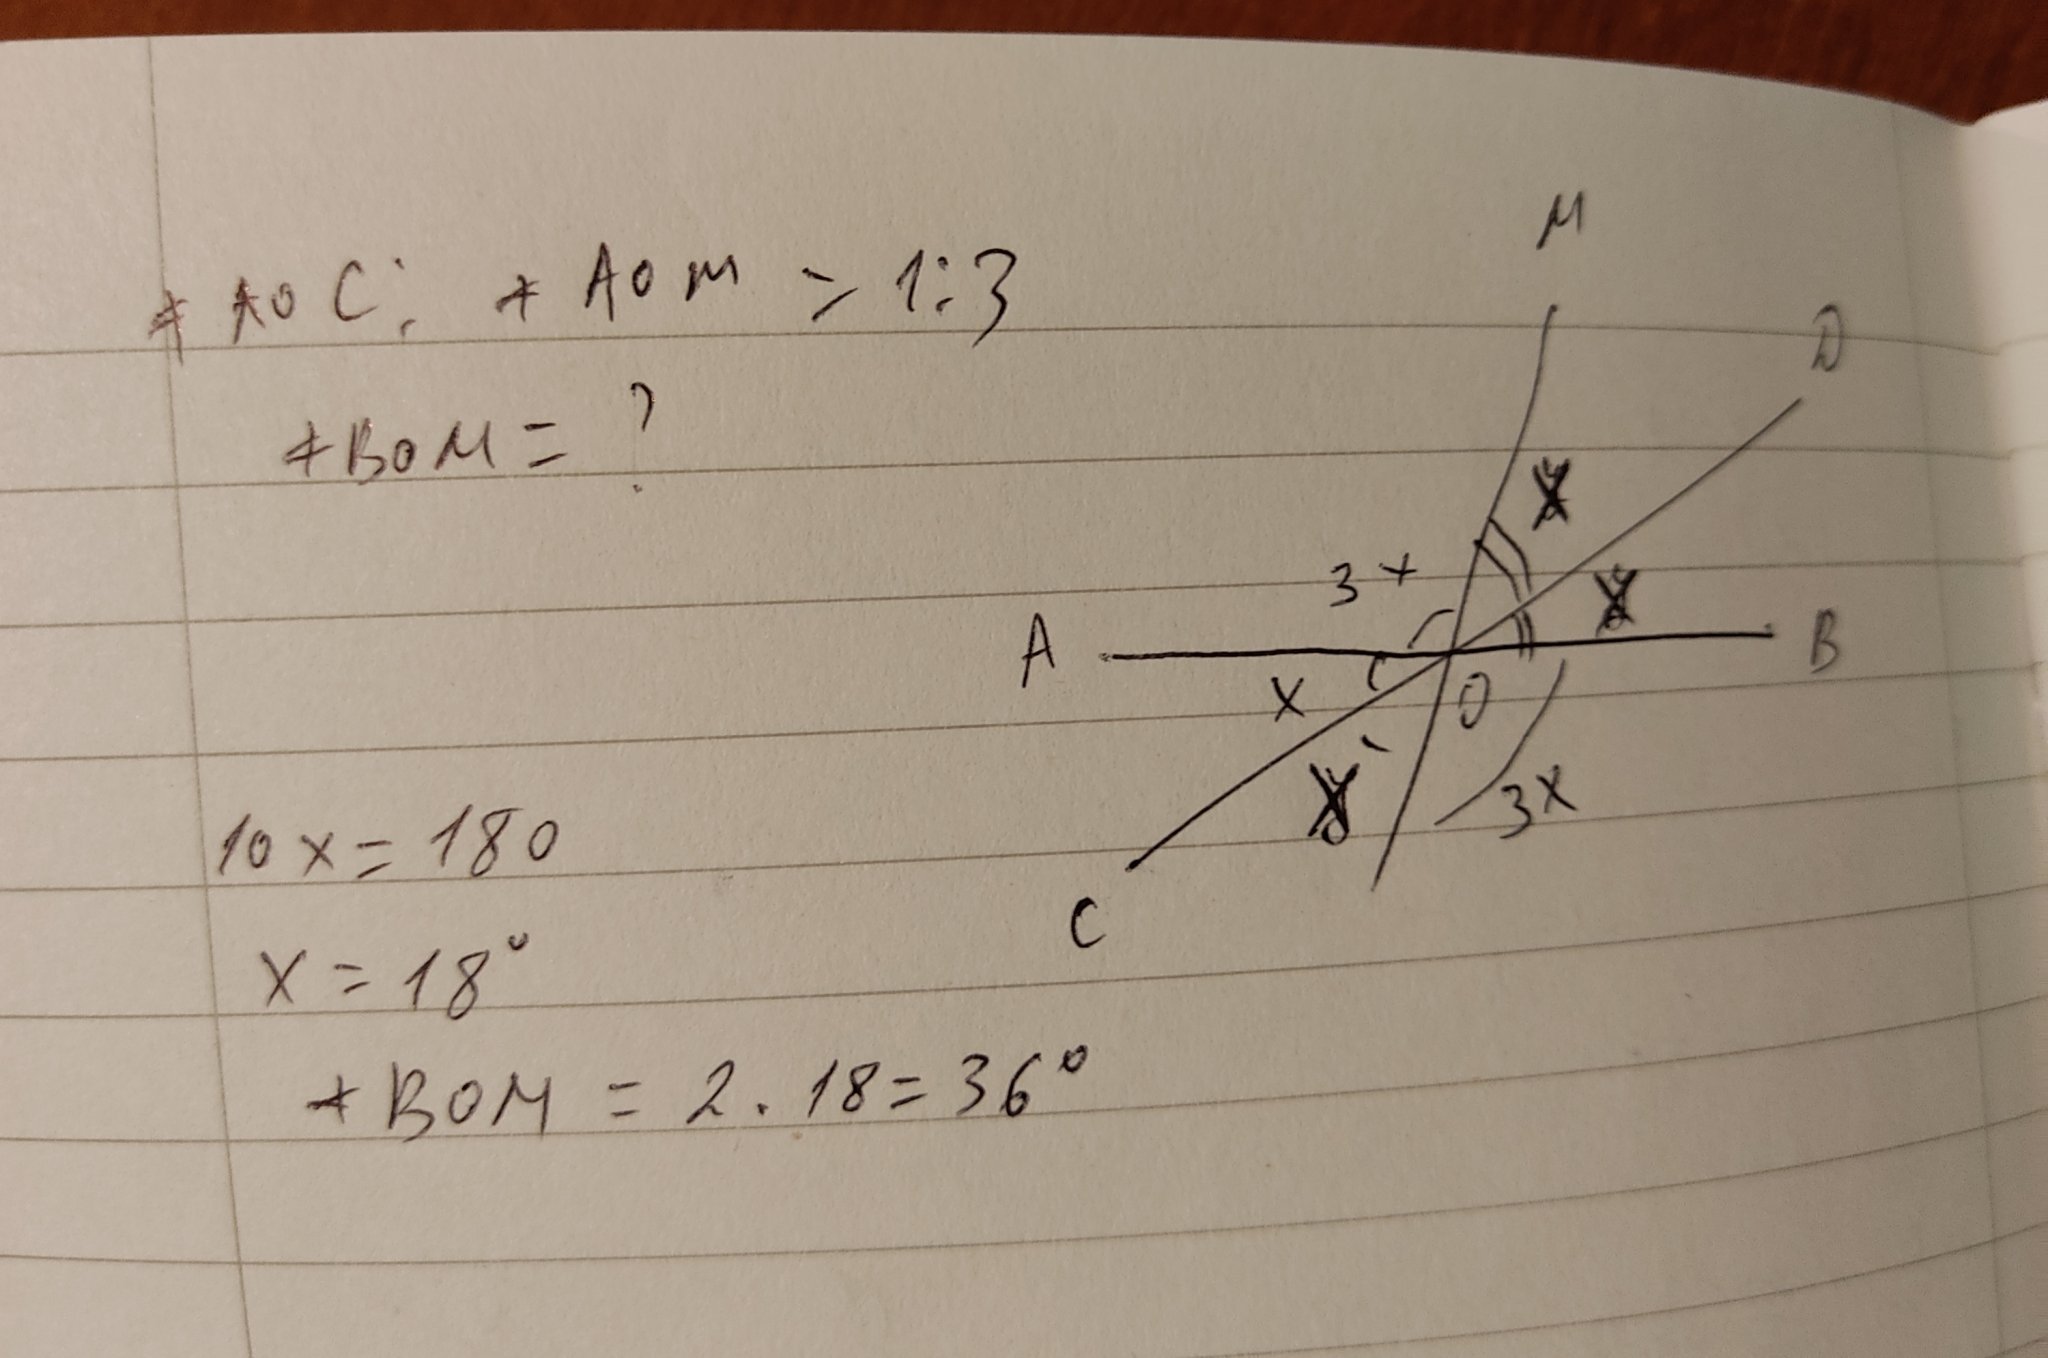 ∢ AOC : ∢ AOM = 1:3
∢BOM = ?
M
D
x
3x
x
A
B
x
O
x
3x
C
10x = 180
x = 18°
∢ BOM = 2 . 18 = 36°